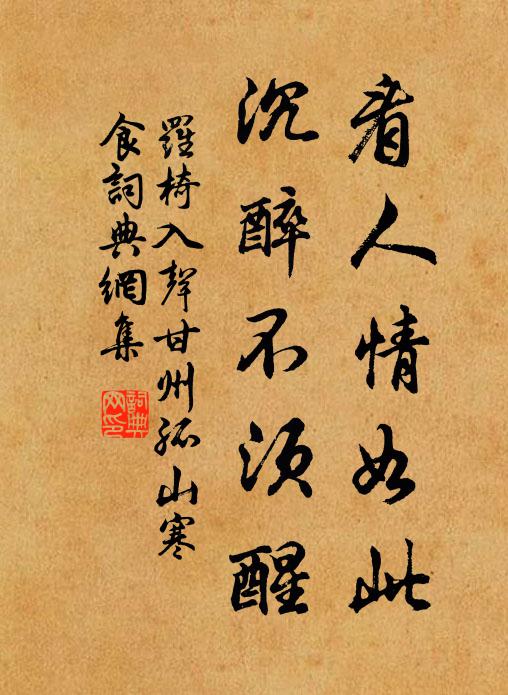 看人情如此
沉醉不須醒
羅椅八聲甘州孤山寒
食詞典網集
詞典
网印